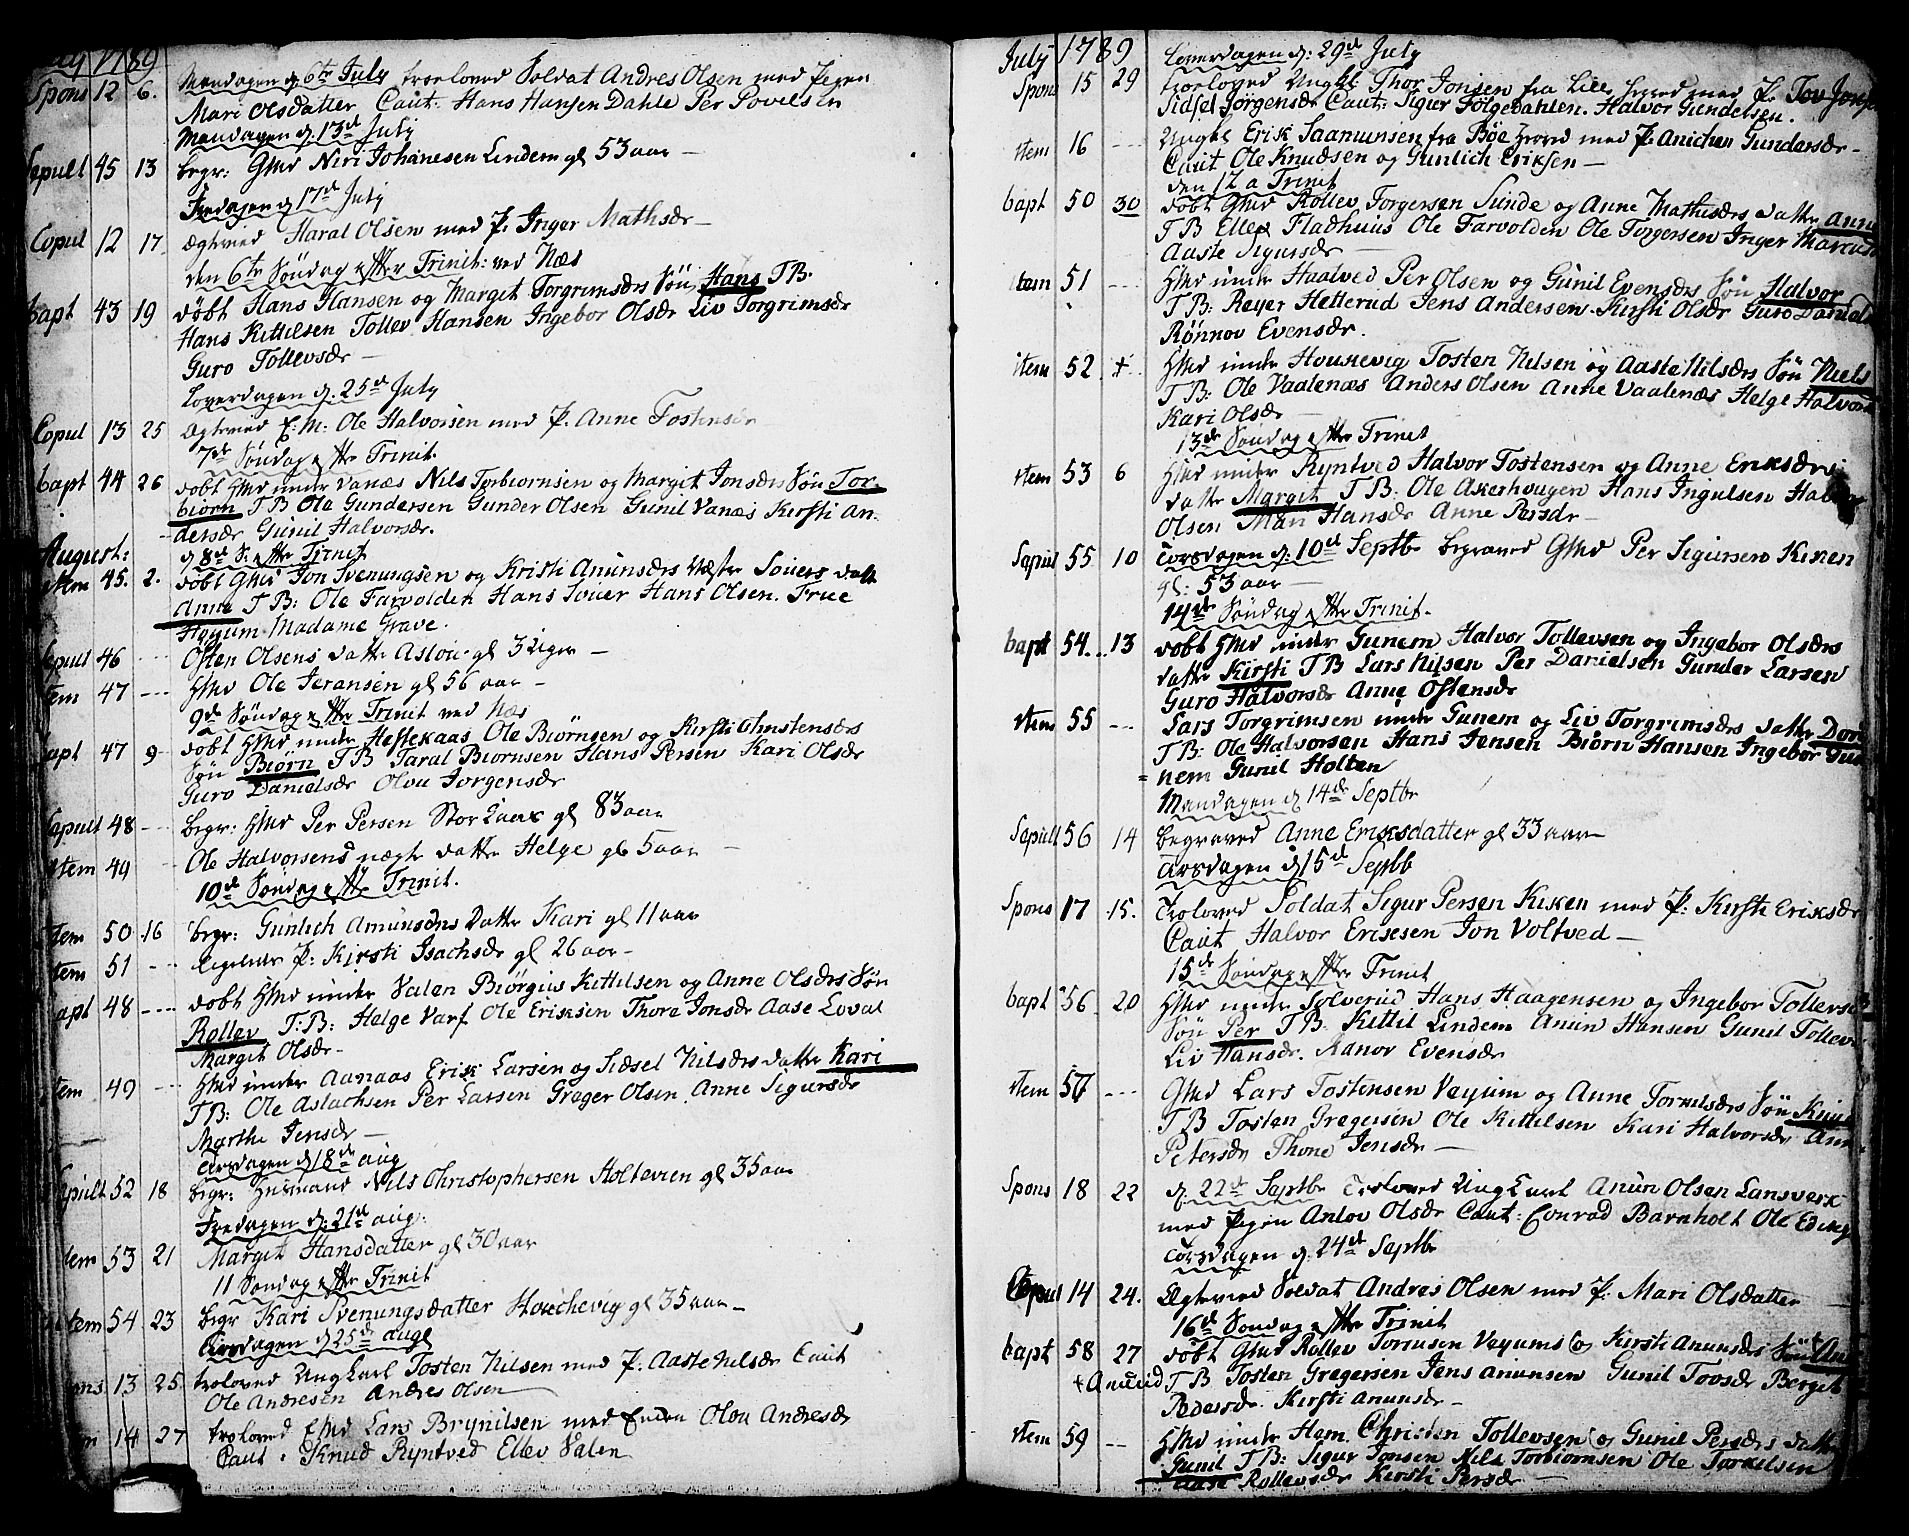 July 1789
Spons 12 6. Mandagen d 6te July troeloved Soldat Andres Olsen med Pigen
Mari Olsdatter Caut: Hans Hansen Dahle Per Povelsen
Mandagen d. 13de July
Sepult 45 13 begr: Gmd Niri Johanesen Lindem gl 53 aar —
Fredagen d 17de July
Copul 12 17 Ægteviet Haral Olsen med P. Inger Mathsdr —
den 6te Søndag efter Trinit: ved Næs
bapt 43 19 døbt Hans Hansen og Margit Torgrimsdrs Søn Hans T B.
Hans Kittilsen Tollev Hansen Ingebor Olsdr Liv Torgrimsdr
Guro Tollevsdr —
Løverdagen d. 25de July
Copul 13 25 Ægteviet E: M: Ole Halvorsen med P. Anne Tostensdr
7de Søndag efter Trinit.
bapt 44 26 døbt Hmd under Vanæs Nils Torbiørnsen og Margit Jonsdrs Søn Tor-
biørn T B Ole Gundersen Gunder Olsen Gunil Vanæs Kirsti An-
dersdr Gunil Halvorsdr.
August: d 8de S. efter Trinit
item 45. 2. døbt Gmd Jon Svenungsen og Kristi Anunsdrs Næstre Souers datt
Anne T B: Ole Farvolden Hans Souer Hans Olsen. Frue
Høyum Madame Grave.
Sepult 46 --- Osten Olsens datter Aslou gl 3 Uger —
item 47 --- Hmd Ole Jeransen gl 56 aar —
9de Søndag efter Trinit ved Næs
bapt 47 9 døbt Hmd under Hestekaas Ole Biørnsen og Kirsti Christensdrs
Søn Biørn T B Taral Biørnsen Hans Persen Kari Olsdr
Guro Danielsdr Olou Jorgensdr
Sapult 48 --- begr: Hmd Per Persen Stor Laar gl 83 aar
item 49 --- Ole Halvorsens nægte datter Helge gl 5 aar —
10de Søndag efter Trinit.
item 50 16 begr: Gunlich Amunsdrs Datter Kari gl 11 aar
item 51 --- Ligeledes P: Kirsti Isachsdr gl 26 aar —
bapt 48 ---- døbt Hmd under Valen Biørgius Kittilsen og Anne Olsdrs Søn
Rollev T: B: Helge Varf Ole Eriksen Thore Jonsdr Aase Loval
Margit Olsdr —
item 49 --- Hmd under Aanaas Erik Larsen og Sidsel Nilsdrs datter Kari
T B: Ole Aslachsen Per Larsen Greger Olsen Anne Sigursdr
Marthe Jensdr —
Tirsdagen d 18de aug
Sepult 52 18 begr: Husmand Nils Christophersen Holtevien gl 35 aar
Fredagen d: 21de aug.
item 53 21 Margit Hansdatter gl 30 aar
11 Søndag efter Trinit
item 54 23 begr Kari Svenungsdatter Houchevig gl 35 aar —
Tirsdagen d 25de augl
Spons 13 25 troloved Ungkarl Tosten Nilsen med P. Aaste Nilsdr Caut
Ole Andresen Andres Olsen
item 14 27 troloved E Md Lars Brynilsen med Enken Olou Andresdr
Caut. Knud Ryntved Ellev Valen
July 1789 Løverdagen d: 29de July
Spons 15 29 troloved Ungkl Thor Jonsen fra Lille herred med P. Tov Jons
Sidsel Jørgensdr Caut: Sigur Følgedahlen. Halvor Gundelsen.
item 16 --- Ungkl Erik Saamunsen fra Bøe Hrred med P. Anichen Gundersdr —
Caut Ole Knudsen og Gunlich Eriksen —
den 12 a Trinit
bapt 50 30 døbt Gmd Rollev Torgersen Sunde og Anne Mathisdrs datter Anne
T B Ellef Fladhuus Ole Farvolden Ole Torgersen Inger Marcus
Aaste Sigursdr —
item 51 --- Hmd under Haatved Per Olsen og Gunil Evensdrs Søn Halvor
T B: Reyer Hetterud Jens Andersen. Kirsti Olsdr Guro Daniels
Rønnov Evensdr.
item 52 + Hmd under Houkevig Tosten Nilsen og Aaste Nilsdrs Søn Niels
T B: Ole Vaalenæs Anders Olsen Anne Vaalenæs Helge Halvors
Kari Olsdr —
13de Søndag efter Trinit
item 53 6 Hmd under Ryntved Halvor Tostensen og Anne Eriksdrs
datter Margit T B: Ole Akerhougen Hans Ingulsen Halvor
Olsen Mari Hansdr Anne Persdr —
Sapul 55 10 Torsdagen d: 10de Septbr begraved Gmd Per Sigursen Kiken
gl: 53 aar —
14de Søndag efter Trinit.
bapt 54 13 døbt Hmd under Gunem Halvor Tollevsen og Ingebor Olsdrs
datter Kirsti T B Lars Nilsen Per Danielsen Gunder Larsen
Guro Halvorsdr Anne Ostensdr
item 55 --- Lars Torgrimsen under Gunem og Liv Torgrimsdrs datter
T B: Ole Halvorsen Hans Jensen Biørn Hansen Ingebor Gu-
nem Gunil Holten
Mandagen d 14de Septbr
Sapult 56 14 begraved Anne Eriksdatter gl 33 aar —
Tirsdagen d 15de Septbr
Spons 17 15. troloved Soldat Sigur Persen Kiken med P: Kirsti Eriksdr
Caut Halvor Eriksen Jon Voltved —
15de Søndag efter Trinit
bapt 56 20 Hmd under Solverud Hans Haagensen og Ingebor Tollevsd
Søn Per T B. Kittil Lindem Anun Hansen Gunil Tollevs
Liv Hansdr. Ranov Evensdr
item 57 --- Gmd Lars Tostensen Vejum og Anne Torkilsdrs Søn
T B Tosten Gregersen Ole Kittilsen Kari Halvorsdr Ann
Petersdr Thone Jensdr —
Spons 18 22 d. 22de Septbr troloved Ung Karl Anun Olsen Lansverk
med Pigen Anlov Olsdr Caut: Conrad Barnholt Ole Eding
Torsdagen d. 24de Septbr
Copul 14 24. Ægteviet Soldat Andres Olsen med P: Mari Olsdatter —
16de Søndag efter Trinit
bapt 58 27 døbt Gmd Rollev Torkusen Veyums og Kirsti Anunsdrs Søn An
+ Anund T B Tosten Gregersen Jens Anunsen Gunil Toosdr Berget
Pedersdr. Kirsti Anunsdr —
item 59 -- Hmd under Hem Christen Tollevsen og Gunil Persdrs datter
Gunil T B: Sigur Jonsen Nils Torbiornsen Ole Torkelsen
Aase Rollevsdr Kirsti Persdr —